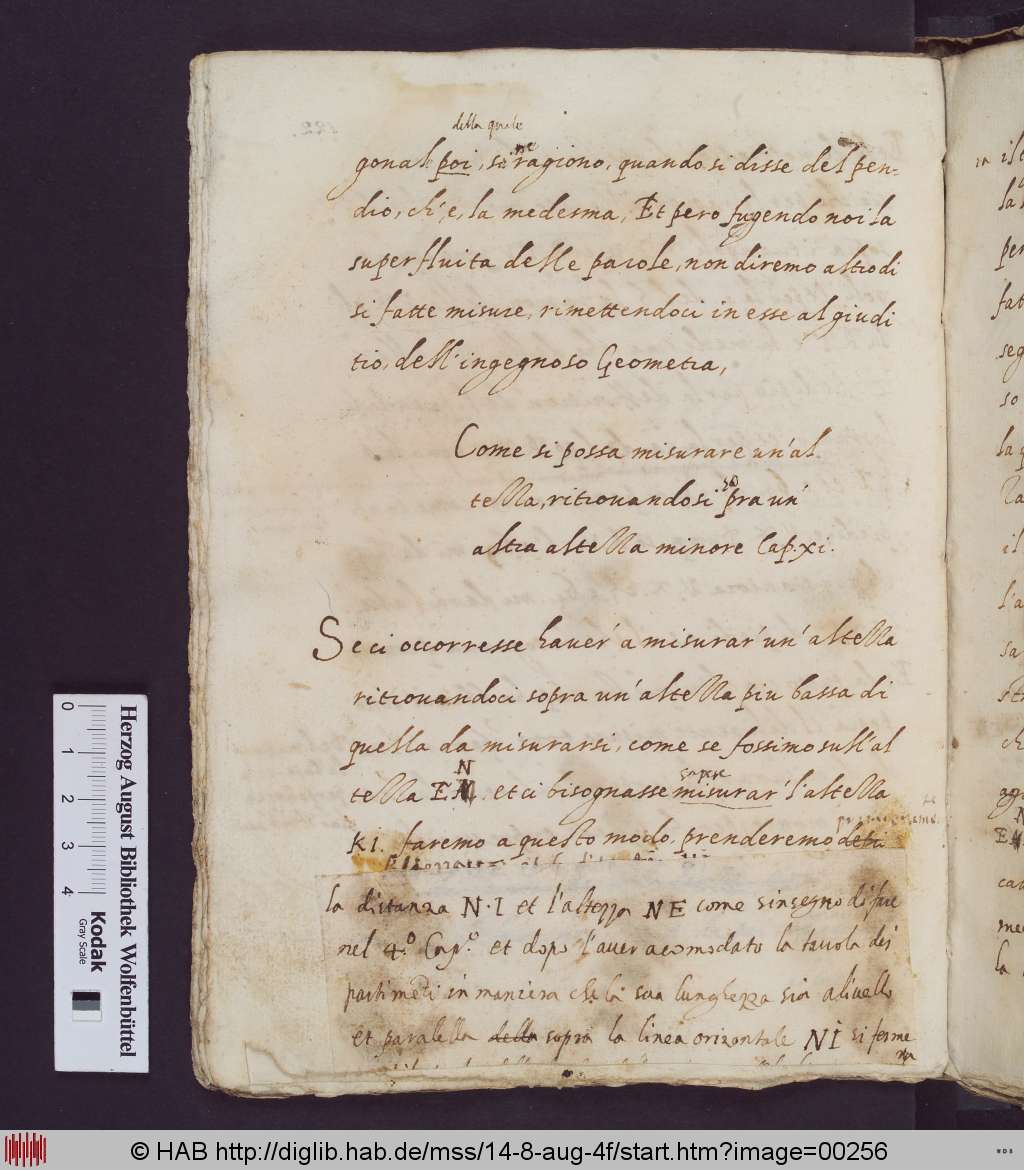 della quale
gonal poi, si ne ragiono, quando si disse del pen-
dio, ch'e, la medesma, Et pero fugendo noi la
superfluita delle parole, non diremo altro di
si fatte misure, rimettendoci in esse al giudi
tio, dell'ingegnoso Geometra,
Come si possa misurare un'al
tella, ritrouandosi sopra un'
altra altella minore Cap. xi.
Se ci occorresse haver' a misurar' un' altella
ritrouandoci sopra un' altella piu bassa di
quella da misurarsi, come se fossimo sull'al
N
tella E et ci bisognasse misurar' l'altella
sapere
KI. faremo a questo modo, prenderemo
la distanza N·I et l'altezza NE come s'insegno di fare
nel 4.º Cap.º et dopo l'aver acomodato la tavola dei
partimeti in maniera che la sua lunghezza sia a livello
et paralella della sopra la linea orizontale NI si ferme
ra
Herzog August Bibliothek Wolfenbüttel
Kodak
Gray Scale
0 1 2 3 4
© HAB http://diglib.hab.de/mss/14-8-aug-4f/start.htm?image=00256